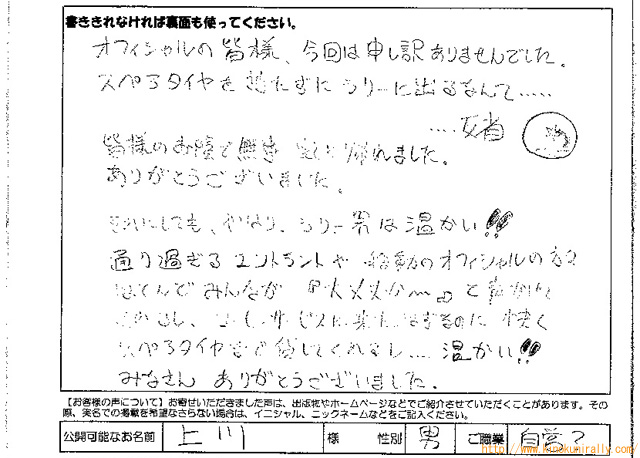 書ききれなければ裏面も使ってください。
オフィシャルの皆様、今回は申し訳ありませんでした。
スペアタイヤを持たずにラリーに出るなんて.....
....反省
皆様のお陰で無事 帰れました。
ありがとうございました。
それにしても、やはり、ラリー男は温かい!!
通り過ぎるエントラントや移動のオフィシャルの方々
ほとんどみんなが『大丈夫か〜』と声かけ
快く
スペアタイヤまで貸してくれるし... 温かい!!
みなさん ありがとうございました。
【お客様の声について】お寄せいただきました声は、出版物やホームページなどでご紹介させていただくことがあります。その
際、実名での掲載を希望なさらない場合は、イニシャル、ニックネームなどをご記入ください。
公開可能なお名前 上川 様 性別 男 ご職業 自営?
www.kinokunirally.com/